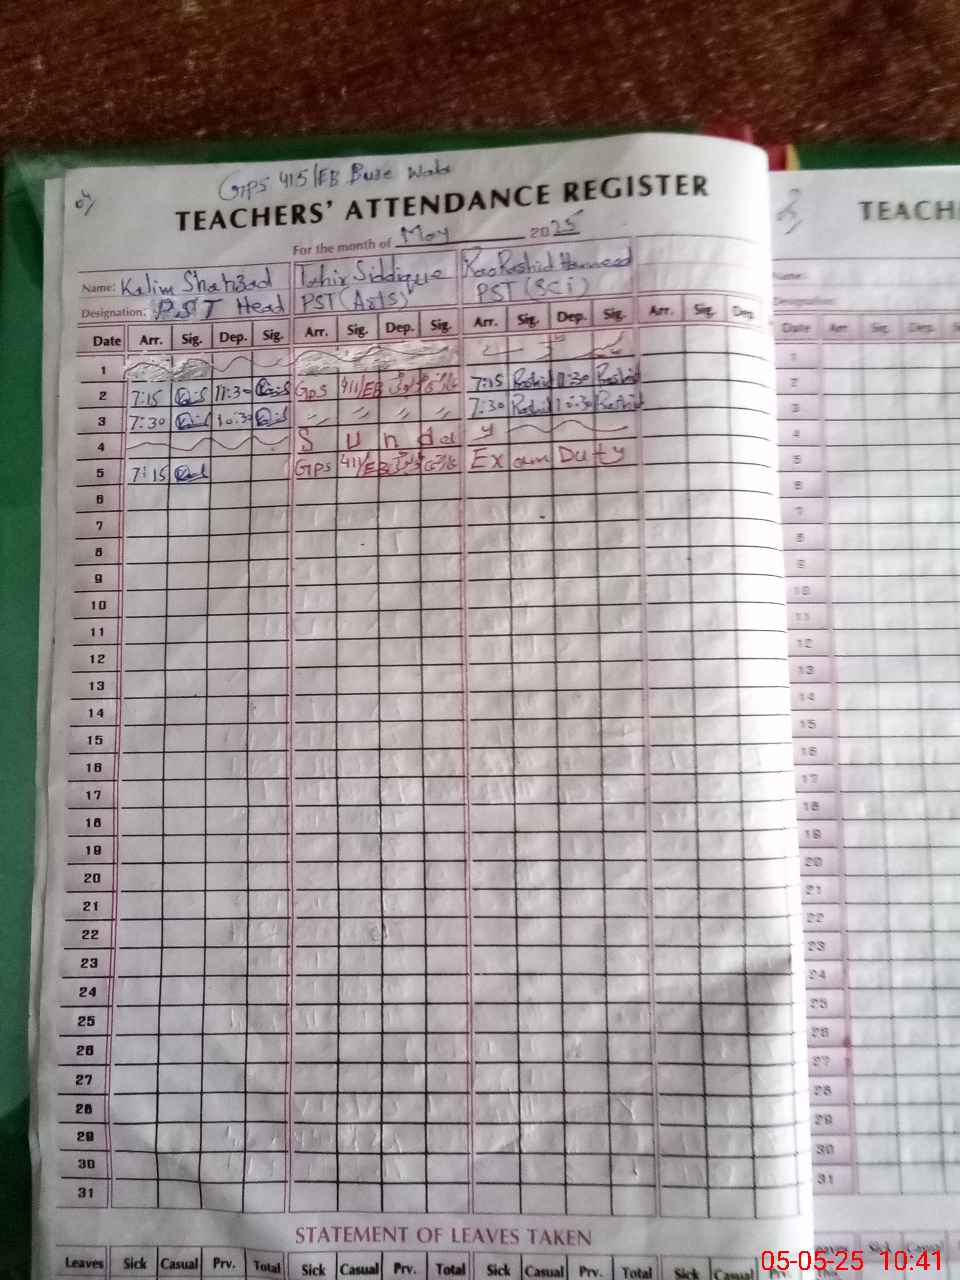 GPS 415/EB Buse Wala
TEACHERS' ATTENDANCE REGISTER
TEACH
For the month of May 2025
Name: Kalim Shahzad Tahir Siddique Rao Rashid Hameed
Name:
Designation: PST Head PST (Arts) PST (SCi)
Designation:
Date Arr. Sig. Dep. Sig. Arr. Sig. Dep. Sig. Arr. Sig. Dep. Sig. Arr. Sig. Dep.
Date Arr. Sig. Dep.
1
2 7:15 11:30 GPS 411/EB 7:15 Rashid 11:30 Rashid
3 7:30 10:30 7:30 Rashid 10:30 Rashid
4 S u n d a y
5 7:15 GPS 411/EB Exam Duty
6
7
8
9
10
11
12
13
14
15
16
17
18
19
20
21
22
23
24
25
26
27
28
29
30
31
1
2
3
4
5
6
7
8
9
10
11
12
13
14
15
16
17
18
19
20
21
22
23
24
25
26
27
28
29
30
31
STATEMENT OF LEAVES TAKEN
Leaves Sick Casual Prv. Total Sick Casual Prv. Total Sick Casual Prv. Total Sick Casual Prv.
Leaves Sick Casual
05-05-25 10:41